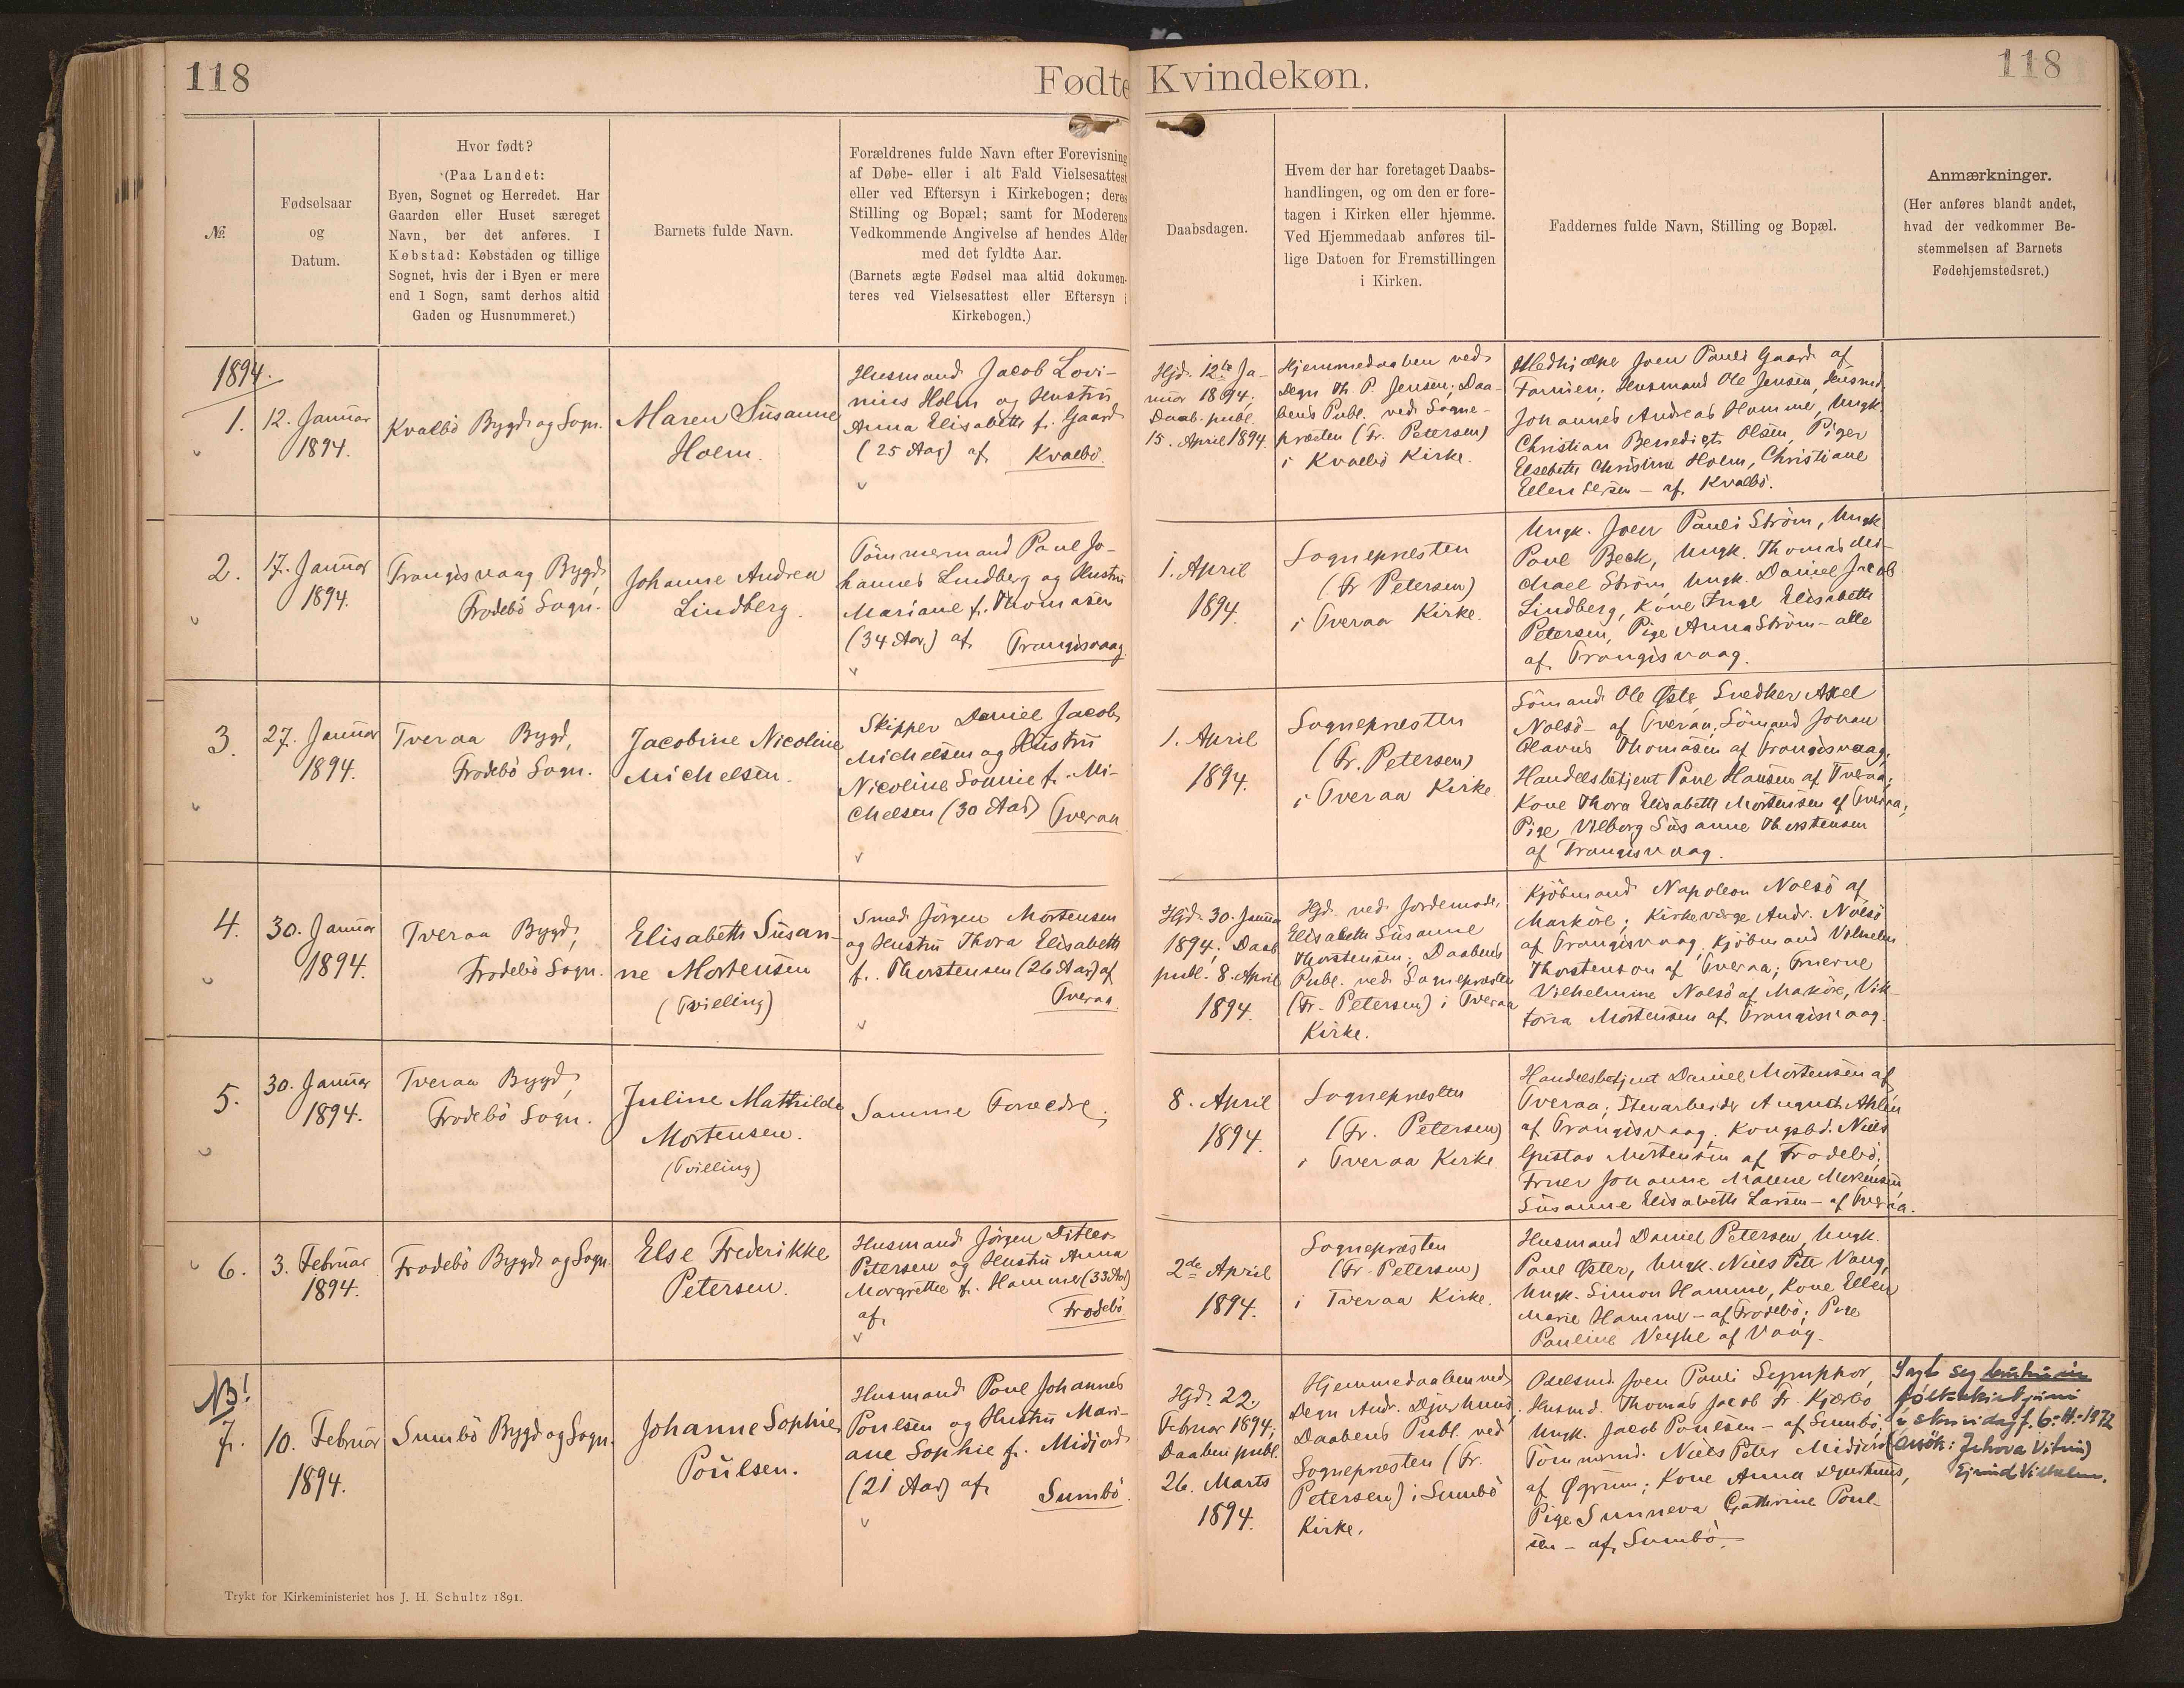 118
Fødte
Kvindekøn.
118
№
Fødselsaar
og
Datum.
Hvor født?
(Paa Landet:
Byen, Sognet og Herredet. Har
Gaarden eller Huset særeget
Navn, bør det anføres. I
Købstad: Købstaden og tillige
Sognet, hvis der i Byen er mere
end 1 Sogn, samt derhos altid
Gaden og Husnummeret.)
Barnets fulde Navn.
Forældrenes fulde Navn efter Forevisning
af Døbe- eller i alt Fald Vielsesattest
eller ved Eftersyn i Kirkebogen; deres
Stilling og Bopæl; samt for Moderens
Vedkommende Angivelse af hendes Alder
med det fyldte Aar.
(Barnets ægte Fødsel maa altid dokumen-
teres ved Vielsesattest eller Eftersyn i
Kirkebogen.)
Daabsdagen.
Hvem der har foretaget Daabs-
handlingen, og om den er fore-
tagen i Kirken eller hjemme.
Ved Hjemmedaab anføres til-
lige Datoen for Fremstillingen
i Kirken.
Faddernes fulde Navn, Stilling og Bopæl.
Anmærkninger.
(Her anføres blandt andet,
hvad der vedkommer Be-
stemmelsen af Barnets
Fødehjemstedsret.)
1894.
1.
12. Januar
1894.
Kvalbö Bygd og Sogn.
Maren Susanne
Holm.
Husmand Jacob Lovi-
nius Holm og Hustru
Anna Elisabeth f. Gaard
(25 Aar) af Kvalbö.
Hjd. 12te Ja-
nuar 1894;
Daab. publ.
15. April 1894.
Hjemmedaaben ved
Degn Th P Jensen; Daa-
bens Publ. ved Sogne-
præsten (Fr. Petersen)
i Kvalbö Kirke.
Medhjælper Joen Pauli Gaard af
Famien; Husmand Ole Jensen, Husmd
Johannes Andreas Hammer, Ungk.
Christian Benedigt Olsen, Piger
Elsebeth Christine Holm, Christiane
Ellen - af Kvalbö.
2.
17. Januar
1894.
Trangisvaag Bygd,
Frodebö Sogn.
Johanne Andrea
Lindberg.
Tömmermand Poul Jo-
hannes Lindberg og Hustru
Mariane f. Thomasen
(34 Aar) af Trangisvaag.
1. April
1894.
Sognepræsten
(Fr Petersen)
i Tveraa Kirke.
Ungk. Joen Pauli Ström, Ungk
Poul Beck, Ungk. Thomas Mi-
chael Ström, Ungk. Daniel Jacob
Lindberg, Kone Inge Elisabeth
Petersen, Pige Anna Ström - alle
af Trangisvaag.
3.
27. Januar
1894.
Tveraa Bygd,
Frodebö Sogn.
Jacobine Nicoline
Michelsen.
Skipper Daniel Jacob
Michelsen og Hustru
Nicoline Sonnie f. Mi-
chelsen (30 Aar) Tveraa
1. April
1894.
Sognepræsten
(Fr. Petersen)
i Tveraa Kirke
Sömand Ole Øster, Snedker Axel
Nolsö - af Tveraa; Sömand Johan
Olavus Thomasen af Trangisvaag;
Handelsbetjent Poul Hansen af Tveraa;
Kone Thora Elisabeth Mortensen af Tveraa;
Pige Vilborg Susanne Thorstensen
af Trangisvaag.
4.
30. Januar
1894.
Tveraa Bygd,
Frodebö Sogn.
Elisabeth Susan-
ne Mortensen
(Tvilling)
Smed Jörgen Mortensen
og Hustru Thora Elisabeth
f. Thorstensen (26 Aar) af
Tveraa
Hjd. 30. Janua
1894; Daab
publ. 8. April
1894.
Hjd. ved Jordemode.
Elisabeth Susanne
Thorstensen; Daabens
Publ. ved Sognepræsten
(Fr. Petersen) i Tveraa
Kirke.
Kjöbmand Napoleon Nolsö af
Marköre; Kirkeværge Andr. Nolsö
af Trangisvaag, Kjöbmand Vilhelm
Thorstenson af Tveraa; Fruerne
Vilhelmine Nolsö af Marköre, Vik-
toria Mortensen af Trangisvaag.
5.
30. Januar
1894.
Tveraa Bygd,
Frodebö Sogn.
Juline Mathilde
Mortensen.
(Tvilling)
Samme Forældre.
8. April
1894.
Sognepræsten
(Fr. Petersen)
i Tveraa Kirke.
Handelsbetjent Daniel Mortensen af
Tveraa; Stenarbeider August Ahlén
af Trangisvaag. Kongsbd. Niels
Gustav Mortensen af Frodebö;
Fruer Johanne Malene Mortensen,
Susanne Elisabeth Larsen - af Tveraa.
6.
3. Februar
1894.
Frodebö Bygd og Sogn
Else Frederikke
Petersen.
Husmand Jörgen Ditlev
Petersen og Hustru Anna
Margrethe f. Hammer (33 Aar)
af Frodebö
2de April
1894.
Sognepræsten
(Fr. Petersen)
i Tveraa Kirke.
Husmand Daniel Petersen, Ungk.
Poul Øster, Ungk. Niels Peter Vang,
Ungk. Simon Hammer, Kone Ellen
Marie Hammer - af Frodebö; Pige
Pauline Veyhe af Vaag.
NB!
7.
10. Februar
1894.
Sumbö Bygd og Sogn.
Johanne Sophie
Poulsen.
Husmand Poul Johannes
Poulsen og Hustru Mari-
ane Sophie f. Midjord
(21 Aar) af Sumbö.
Hjd. 22.
Februar 1894;
Daaben publ.
26. Marts
1894.
Hjemmedaaben ved
Degn Andr. Djurhuus,
Daabens Publ. ved
Sognepræsten (Fr.
Petersen) i Sumbö
Kirke.
Joen Pauli Symphor,
Husmd. Thomas Jacob Fr. Kjærbo
Ungk. Jacob Poulsen - af Sumbö;
Tömmermd. Niels Peter Midjord
af Øgrum; Kone Anna Djurhuus,
Pige Sunneva Cathrine Poul-
sen - af Sumbö.
Sagt seg úr
fólkakirkjuni
í skrivi dagf. 6.-11.-1972
(Orsök: Jehova Vitni)
Ejvind Vilhelm.
Trykt for Kirkeministeriet hos J. H. Schultz 1891.